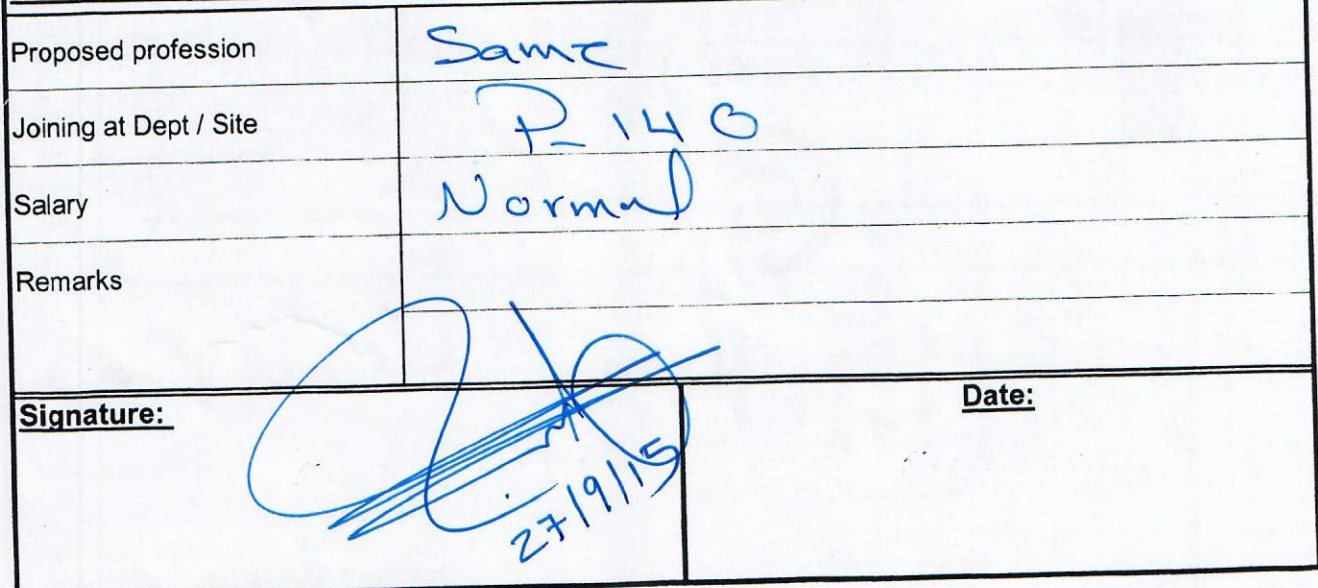 Proposed profession Same
Joining at Dept / Site P-140
Salary Normal
Remarks
Signature: Date:
27/9/15